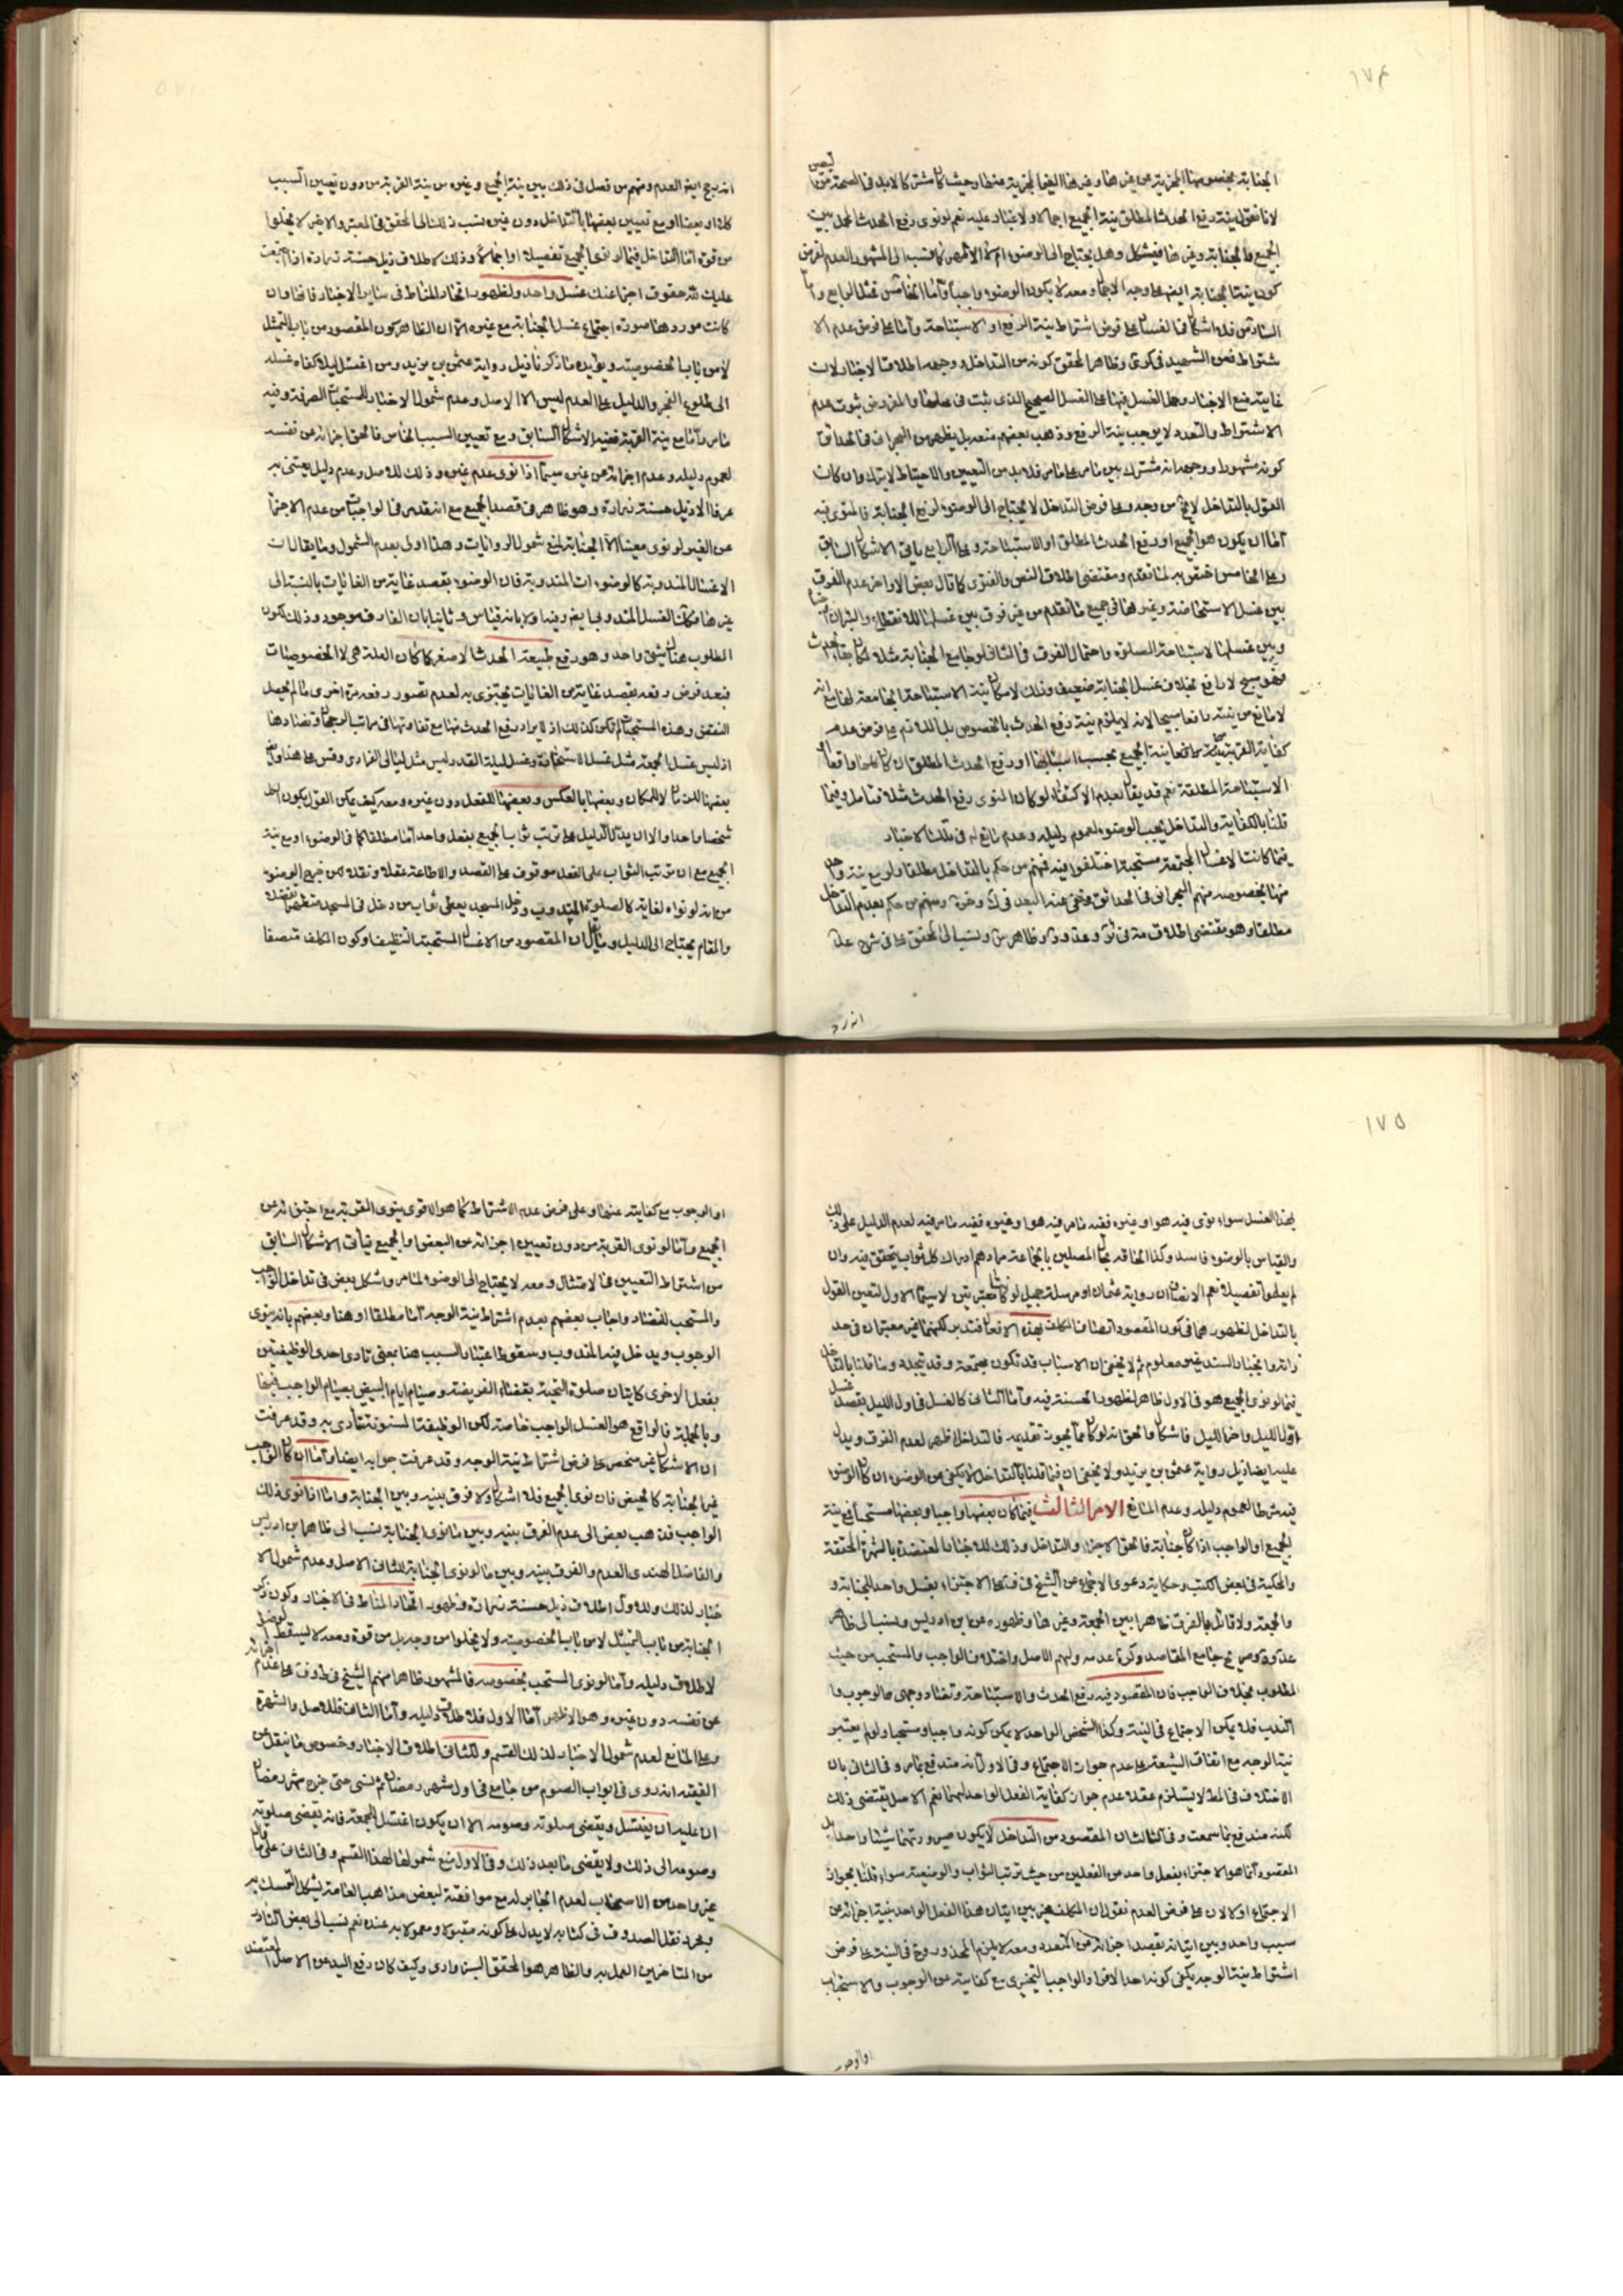 ١٧٤
الجنابة بخصوصها المجزية عن غيرها وغيرها الغير المجزية عنها وحيث كان مشتركا لا بد في الصحة من
لانا نقول نية رفع الحدث المطلق نية الجميع اجمالا ولا غبار عليه نعم لو نوى رفع الحدث المحمل بين
الجميع فالجنابة وغيرها فيشكل وهل يحتاج الى الوضوء ام لا الاظهر كما نسب الى المشهور العدم لفرض
كون نية الجنابة ايضا على وجه الاجمال ومعه لا يكون الوضوء واجبا واما الخامس كمثل الرابع واما
السادس فلا اشكال في الفساد على فرض اشتراط نية الرفع او الاستباحة واما على فرض عدم الا
شتراط فعن الشهيد في كرى وظاهر المحقق كونه من التداخل ووجهه اطلاق الاخبار لان
غاية منع الاخبار وحمل الغسل فيها على الغسل الصحيح الذي ثبت في محلها والمفروض ثبوت عدم
الاشتراط والتعدد لا يوجب نية الرفع وذهب بعضهم منعه بل يظهر من البحراني في الحدائق
كونه مشهورا ووجهه انه مشترك بين ما مر على ما مر فلا بد من التعيين والاحتياط لا يترك وان كان
القول بالتداخل لا يخ من وجه وعلى فرض التداخل لا يحتاج الى الوضوء لرفع الجنابة فالمنوى فيه
اما ان يكون هو الجميع او رفع الحدث المطلق او الاستباحة وعلى الرابع ياتي الاشكال السابق
وعلى الخامس لما تقدم ومقتضى اطلاق النص والفتوى كما قال بعض الاواخر عدم الفرق
بين غسل الاستحاضة وغيرها في جميع ما تقدم من غير فرق بين غسلها للانقطاع
وبين غسلها لاستباحة الصلوة واحتمال الفرق في التداخل مع الجنابة مثلا لمكان بقاء الحدث
فهو مبيح لا رافع بخلاف غسل الجنابة ضعيف وذلك لامكان نية الاستباحة الجامعة لهما مع انه
لا مانع من نية رافعا مبيحا لانه لا يلزم نية رفع الحدث بالخصوص بل اللازم على فرض عدم
كفاية القربة نية الجميع بحسب اسبابها او رفع الحدث المطلق ان كان كلها واقعا او
الاستباحة المطلقة نعم قد يقال بعدم الاكتفاء لو كان المنوى رفع الحدث مثلا فتامل وفيما
قلنا بالكفاية والتداخل يجب الوضوء لعموم دليله وعدم رافع له في تلك الاخبار
فيما كانت الاغسال المجتمعة مستحبة اختلفوا فيه فمنهم من حكم بالتداخل مطلقا ولو مع نية واحد
منها بخصوصه منهم البحراني في الحدائق ونفى عنه البعد في ومنهم من حكم بعدم التداخل
مطلقا وهو مقتضى اطلاق وظاهر ونسب الى المحقق في شرح
اندرج
اندرج ايض العدم ومنهم من فصل في ذلك بين نية الجميع وغيره من نية القربة من دون تعيين السبب
كلا او بعضا او مع تعيين بعضها بالتداخل دون غيره نسب ذلك الى المحقق في المعتبر والاخير لا يخلو
من قوة اما التداخل فيما لو نوى الجميع تفصيلا او اجمالا وذلك لاطلاق ذيل حسنة زرارة اذا اجتمعت
عليك لله حقوق اجزاعنك غسل واحد ولظهور اتحاد المناط في ساير الاخبار فانها وان
كانت موردها صورة اجتماع غسل الجنابة مع غيره الا ان الظاهر كون المقصود من باب التمثيل
لا من باب الخصوصية ويؤيده ما ذكرنا ذيل رواية عثمن بن يزيد ومن اغتسل ليلا كفاه غسله
الى طلوع الفجر والدليل على العدم ليس الا الاصل وعدم شمول الاخبار للمستحبات الصرفة وفيه
ما مر واما مع نية القربة ففيه الاشكال السابق ومع تعيين السبب الخاص فالحق اجزائه عن نفسه
لعموم دليله وعدم اجزائه عن غيره سيما اذا نوى عدم غيره وذلك للاصل وعدم دليل يعتنى به
عرفا الا ذيل حسنة زرارة وهو ظاهر في قصد الجميع مع انه تقدم في الواجبات من عدم الاجزاء
عن الغير لو نوى معينا الا الجنابة لمنع شمول الروايات وهذا اولى بعدم الشمول وما يقال ان
الاغسال المندوبة كالوضوءات المندوبة فان الوضوء بقصد غاية من الغايات بالنسبة الى
غيرها فكذا الغسل المندوب ايض وفيه اولا بانه قياس وثانيا بان الفارق موجود وذلك لكون
المطلوب هناك شيئ واحد وهو رفع طبيعة الحدث الاصغر كما كان العلة هي لا الخصوصيات
فبعد فرض رفعه بقصد غاية من الغايات يجتزى به لعدم تصور رفعه مرة اخرى ما لم يحصل
النقض وهذه المستحبات لم تكن كذلك اذ لا يراد رفع الحدث منها مع تفاوتها في مراتب الرجحان وتضادها
اذ ليس غسل الجمعة مثل غسل الاستخارة وغسل ليلة القدر ليس مثل ليالي الفرادى وقس على هذا وايض
بعضها للزمان لا للمكان وبعضها بالعكس وبعضها للفعل دون غيره ومعه كيف يمكن القول بكون الكل
شخصا واحدا والا ان يدل الدليل على ترتب ثواب الجميع بفعل واحد اما مطلقا كما في الوضوء او مع نية
الجميع مع ان ترتب الثواب على الفعل موقوف على القصد والاطاعة عقلا ونقلا من خرج الوضوء
من انه لو نواه لغاية كالصلوة المندوب ودخل المسجد يعطى ثواب من دخل في المسجد متطهرا
والمقام يحتاج الى الدليل وما يقال ان المقصود من الاغسال المستحبة التنظيف وكون المكلف متصفا
١٧٥
بهذا الغسل سواء نوى فيه هو او غيره ففيه ما مر فيه هو او غيره ففيه ما مر فيه لعدم الدليل على ذلك
والقياس بالوضوء فاسد وكذا الحاقه بحال المصلين بالجماعة مرادهم ادراك كل ثواب يتحقق فيه وان
لم يعلموا تفصيلا نعم الانصاف ان رواية عثمان او مرسلة جميل لو كانتا معتبرتين لا سيما الاول لتعين القول
بالتداخل لظهورهما في كون المقصود اتصاف المكلف بهذه الافعال فتدبر لكنهما غير معتبران في حد
ذاتهما وانجبار السند غير معلوم ثم لا يخفى ان الاسباب قد تكون مجتمعة وقد تتجدد وما قلنا بالتداخل
فيما لو نوى الجميع هو في الاول ظاهر لظهور الحسنة فيه واما الثاني كالغسل في اول الليل بقصد غسل
اول الليل واخر الليل فاشكال والحق انه لو كان مما يجوز تقديمه فالتداخل اظهر لعدم الفرق ويدل
عليه ايضا ذيل رواية عثمن بن يزيد ولا يخفى ان فيما قلنا بالتداخل لا يكفى عن الوضوء ان كان الوضوء
فيه شرطا لعموم دليله وعدم المانع الامر الثالث فيما كان بعضها واجبا وبعضها مستحبا فمع نية
الجميع او الواجب اذا كان جنابة فالحق الاجزاء والتداخل وذلك للاخبار المعتضدة بالشهرة المحققة
والمحكية في بعض الكتب وحكاية دعوى الاجماع عن الشيخ في ف على الاجتزاء بغسل واحد للجنابة و
والجمعة ولا قائل بالفرق ظاهرا بين الجمعة وغيرها وظهوره عن ابن ادريس ونسب الى ظاهر
وعن جامع المقاصد وكرة عدمه ولهم الاصل واختلاف الواجب والمستحب من حيث
المطلوب بخلاف الواجب فان المقصود فيه رفع الحدث والاستباحة وتضاد وجهى الوجوب وا
الندب فلا يمكن الاجتماع في النية وكذا الشخص الواحد لا يمكن كونه واجبا ومستحبا ولو لم يعتبر
نية الوجه مع اتفاق الشيعة على عدم جواز الاجتماع وفي الاول انه مندفع بما مر وفي الثاني بان
الاختلاف في المط لا يستلزم عقلا عدم جواز كفاية الفعل الواحد لهما نعم الاصل يقتضى ذلك
لكنه مندفع بما سمعت وفي الثالث ان المقصود من التداخل لا يكون صيرورتهما شيئا واحدا بل
المقصود انما هو الاجتزاء بفعل واحد عن الفعلين من حيث ترتب الثواب والوضيعة سواء قلنا بجواز
الاجتماع او لا لان على فرض العدم نقول ان المكلف مخير بين اتيان هذا الفعل الواحد بنية اجزائه عن
سبب واحد وبين اتيانه بقصد اجزائه عن المتعدد ومعه لا يلزم المحذور وح في النية على فرض
اشتراط نية الوجه يكفى كونه احد الافراد الواجب التخييرى مع كفايته عن الوجوب والاستحباب
او الوجوب
او الوجوب مع كفايته عنهما وعلى فرض عدم الاشتراط كما هو الاقوى ينوى القربة مع اجتزائه عن
الجميع واما لو نوى القربة من دون تعيين اجزائه عن البعض او الجميع فيأتى الاشكال السابق
من اشتراط التعيين في الامتثال ومعه لا يحتاج الى الوضوء لما مر واشكل بعض في تداخل الواجب
والمستحب للتضاد واجاب بعضهم بعدم اشتراط نية الوجه اما مطلقا او هنا وبعضهم بانه ينوى
الوجوب ويدخل فيه المندوب وسقوط اعتبار السبب هنا بمعنى تادى احدى الوظيفتين
بفعل الاخرى كاتيان صلوة التحية بقضاء الفريضة وصيام ايام البيض بصيام الواجب فيها
وبالجملة فالواقع هو الغسل الواجب خاصة لكن الوظيفة المسنونة تتأدى به وقد عرفت
ان الاشكال غير منحصر على فرض اشتراط نية الوجه وقد عرفت جوابه ايضا واما ان كان الواجب
غير الجنابة كالحيض فان نوى الجميع فلا اشكال ولا فرق بينه وبين الجنابة واما اذا نوى ذلك
الواجب فذهب بعض الى عدم الفرق بينه وبين ما نوى الجنابة ينسب الى ظاهر ابن ادريس
والفاضل الهندى العدم والفرق بينه وبين ما لو نوى الجنابة للثاني الاصل وعدم شمول الا
خبار لذلك وللاول اطلاق ذيل حسنة زرارة وظهور اتحاد المناط في الاخبار وكون ذكر
الجنابة من باب التمثيل لا من باب الخصوصية ولا يخلو من وجه بل من قوة ومعه لا يسقط الوضوء
لاطلاق دليله واما لو نوى المستحب بخصوصه فالمشهور ظاهرا منهم الشيخ في ط وف على عدم اجزائه
عن نفسه دون غيره وهو الاظهر اما الاول فلاطلاق دليله واما الثاني فللاصل والشهرة
وعلى المانع لعدم شمول الاخبار لذلك القسم وللثاني اطلاق الاخبار وخصوص ما ينقل عن
الفقيه انه روى في ابواب الصوم من جامع في اول شهر رمضان ثم نسى حتى خرج شهر رمضان
ان عليه ان يغتسل ويقضى صلوته وصومه الا ان يكون اغتسل للجمعة فانه يقضى صلوته
وصومه الى ذلك ولا يقضى ما بعد ذلك وفي الاول منع شمولها لهذا القسم وفي الثاني على ما قاله
غير واحد من الاصحاب لعدم الجابر له مع موافقته لبعض مذاهب العامة يشكل التمسك به
وبمجرد نقل الصدوق في كتابه لا يدل على كونه مقبولا ومعمولا به عنده نعم نسب الى بعض الثاذ
من المتاخرين العمل به والظاهر هو المحقق السبزوارى وكيف كان رفع اليد عن الاصل المعتضد